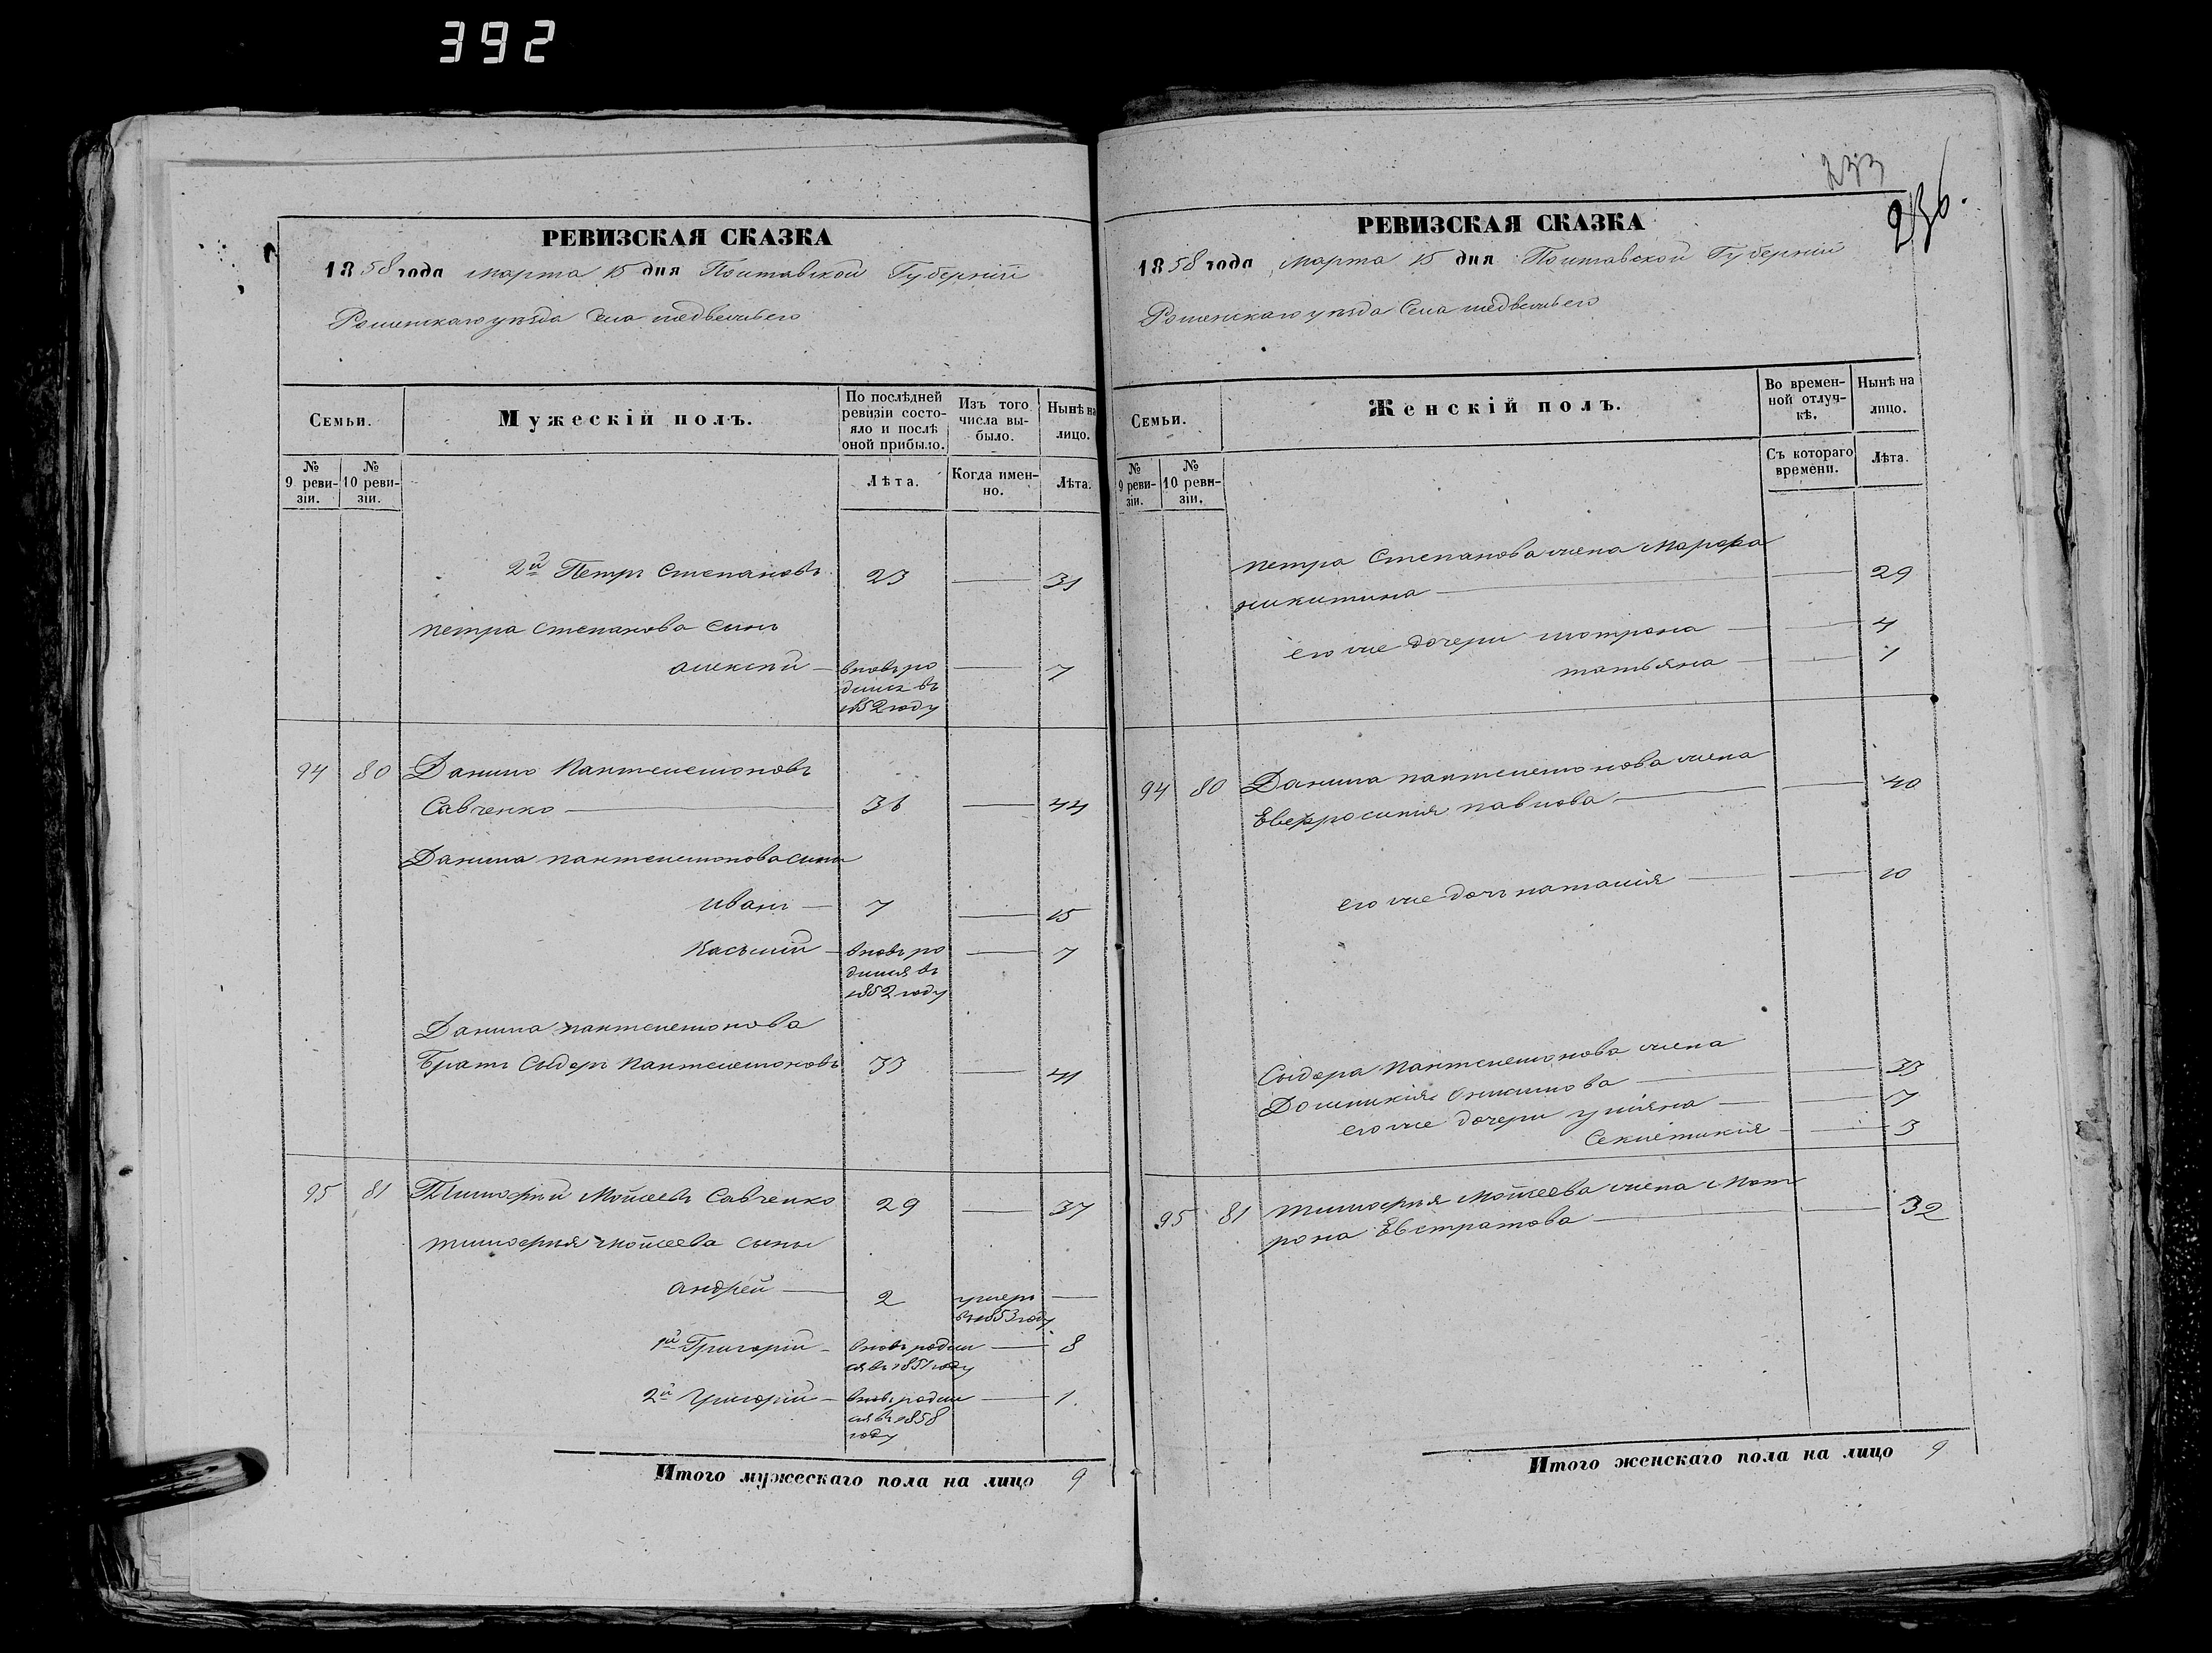 392
РЕВИЗСКАЯ СКАЗКА
1858 года марта 15 дня Полтавской Губерніи
Роменскаго уезда Села медвежьего
Семьи.
Мужескій полъ.
По послѣдней ревизіи состояло и послѣ оной прибыло.
Изъ того числа выбыло.
Нынѣ на лицо.
№ 9 ревизіи.
№ 10 ревизіи.
Лѣта.
Когда именно.
Лѣта.
2й Петръ Степановъ 23 — 31
петра степанова сынъ
алексѣй — вновь ро — 7
дился въ
1852 году
94 80 Данило Пантелемоновъ
Савченко — 36 — 44
Данила пантелемонова сыны
иванъ — 7 — 15
Касьмій — вновь ро — 7
дился въ
1852 году
Данила пантелемонова
Братъ Сыдоръ Пантелемоновъ 33 — 41
95 81 Тимофѣй Мойсеевъ Савченко 29 — 37
тимофѣя мойсеева сыны
андрей — 2 умеръ —
въ 1853 году
1й Григорій — вновь родил — 8
ся въ 1851 году
2й Григорій — вновь родил — 1
ся въ 1858
году
Итого мужескаго пола на лицо 9
233
236.
РЕВИЗСКАЯ СКАЗКА
1858 года марта 15 дня Полтавской Губерніи
Роменскаго уезда Села медвежьего
Семьи.
Женскій полъ.
Во временной отлучкѣ.
Нынѣ на лицо.
№ 9 ревизіи.
№ 10 ревизіи.
Съ котораго времени.
Лѣта.
петра Степанова жена Марфа
никитина — — 29
его же дочери мотрона — — 4
татьяна — — 1
94 80 Данила пантелемонова жена
Евфросинія павлова — — 40
его же дочь наталія — — 10
Сыдора Пантелемонова жена
Домникія Онисимова — — 33
его же дочери уліяна — — 7
Секлетикія — — 3
95 81 тимофѣя Мойсеева жена Мот
рона Евстратова — — 32
Итого женскаго пола на лицо 9